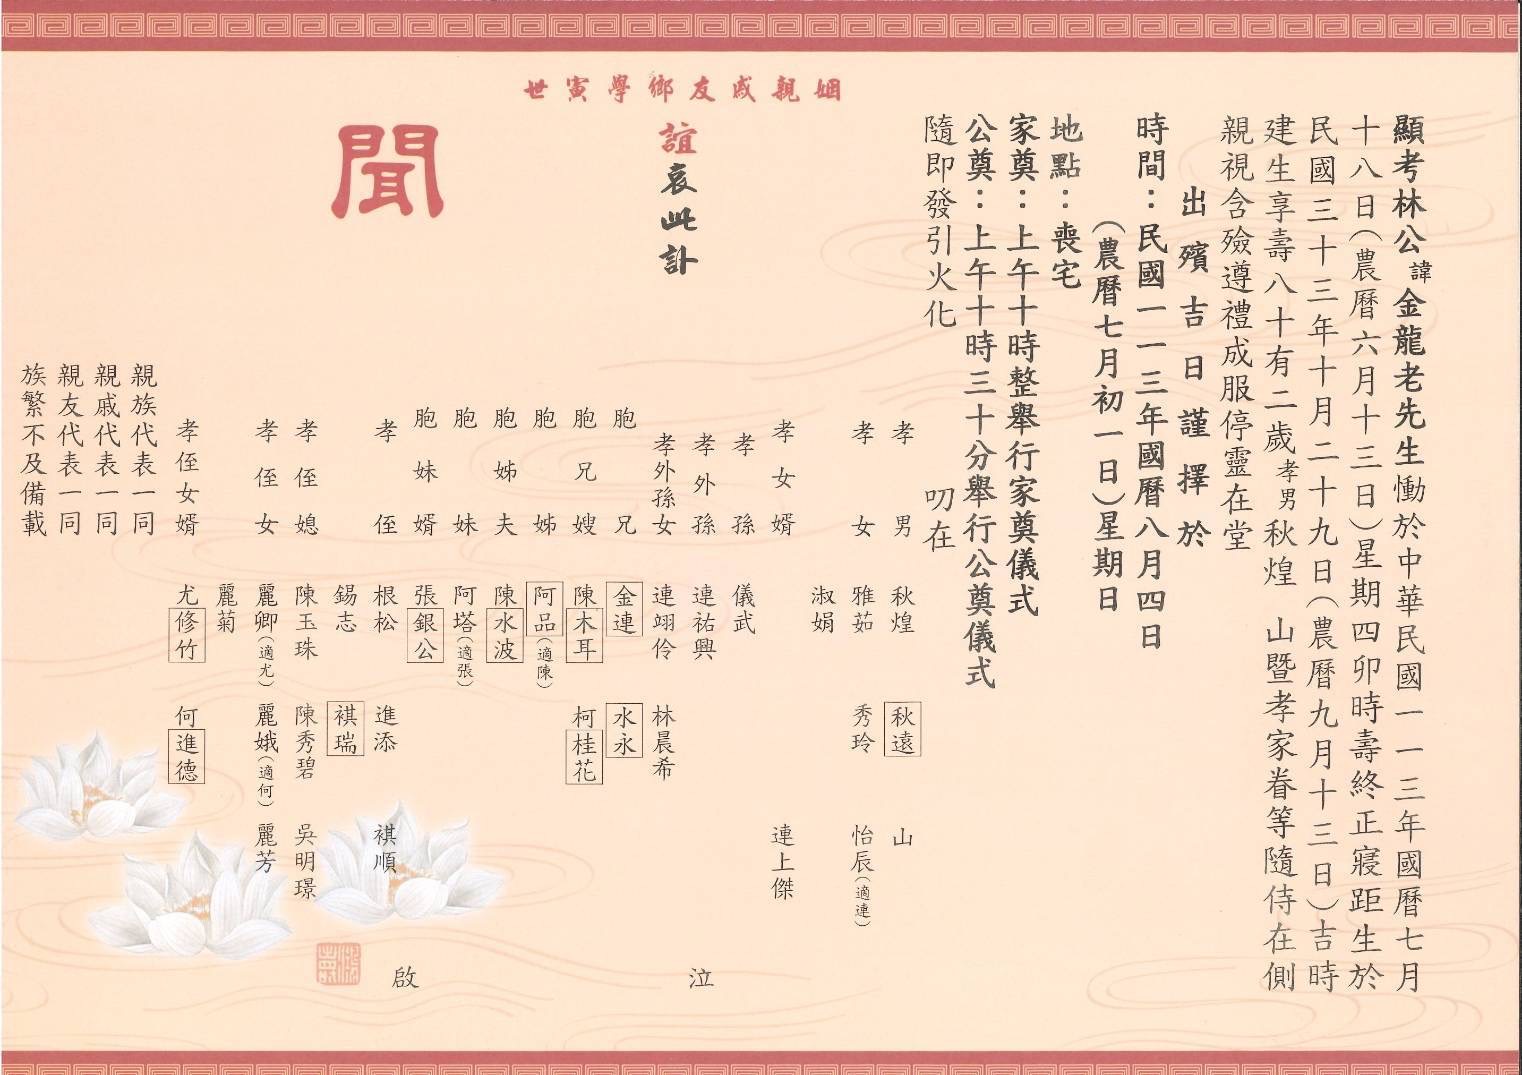 顯考林公諱金龍老先生慟於中華民國一一三年國曆七月
十八日(農曆六月十三日)星期四卯時壽終正寢距生於
民國三十三年十月二十九日(農曆九月十三日)吉時
建生享壽八十有二歲孝男秋煌 山暨孝家眷等隨侍在側
親視含殮遵禮成服停靈在堂
出殯吉日謹擇於
時間:民國一一三年國曆八月四日
(農曆七月初一日)星期日
地點:喪宅
家奠:上午十時整舉行家奠儀式
公奠:上午十時三十分舉行公奠儀式
隨即發引火化 叨在
姻親戚友鄉學寅世
誼哀此訃
聞
孝男 秋煌 秋遠 山
孝女 雅茹 秀玲 怡辰(適連)
淑娟
孝女婿 連上傑
孝孫 儀武
孝外孫 連祐興
孝外孫女 連翊伶 林晨希
胞兄 金連 水永
胞兄嫂 陳木耳 柯桂花
胞姊 阿品(適陳)
胞姊夫 陳水波
胞妹 阿塔(適張)
胞妹婿 張銀公
孝侄 根松 進添 祺順
錫志 祺瑞
孝侄媳 陳玉珠 陳秀碧 吳明璟
孝侄女 麗卿(適尤) 麗娥(適何) 麗芳
麗菊
孝侄女婿 尤修竹 何進德
親族代表一同
親戚代表一同
親友代表一同
族繁不及備載
泣 啟